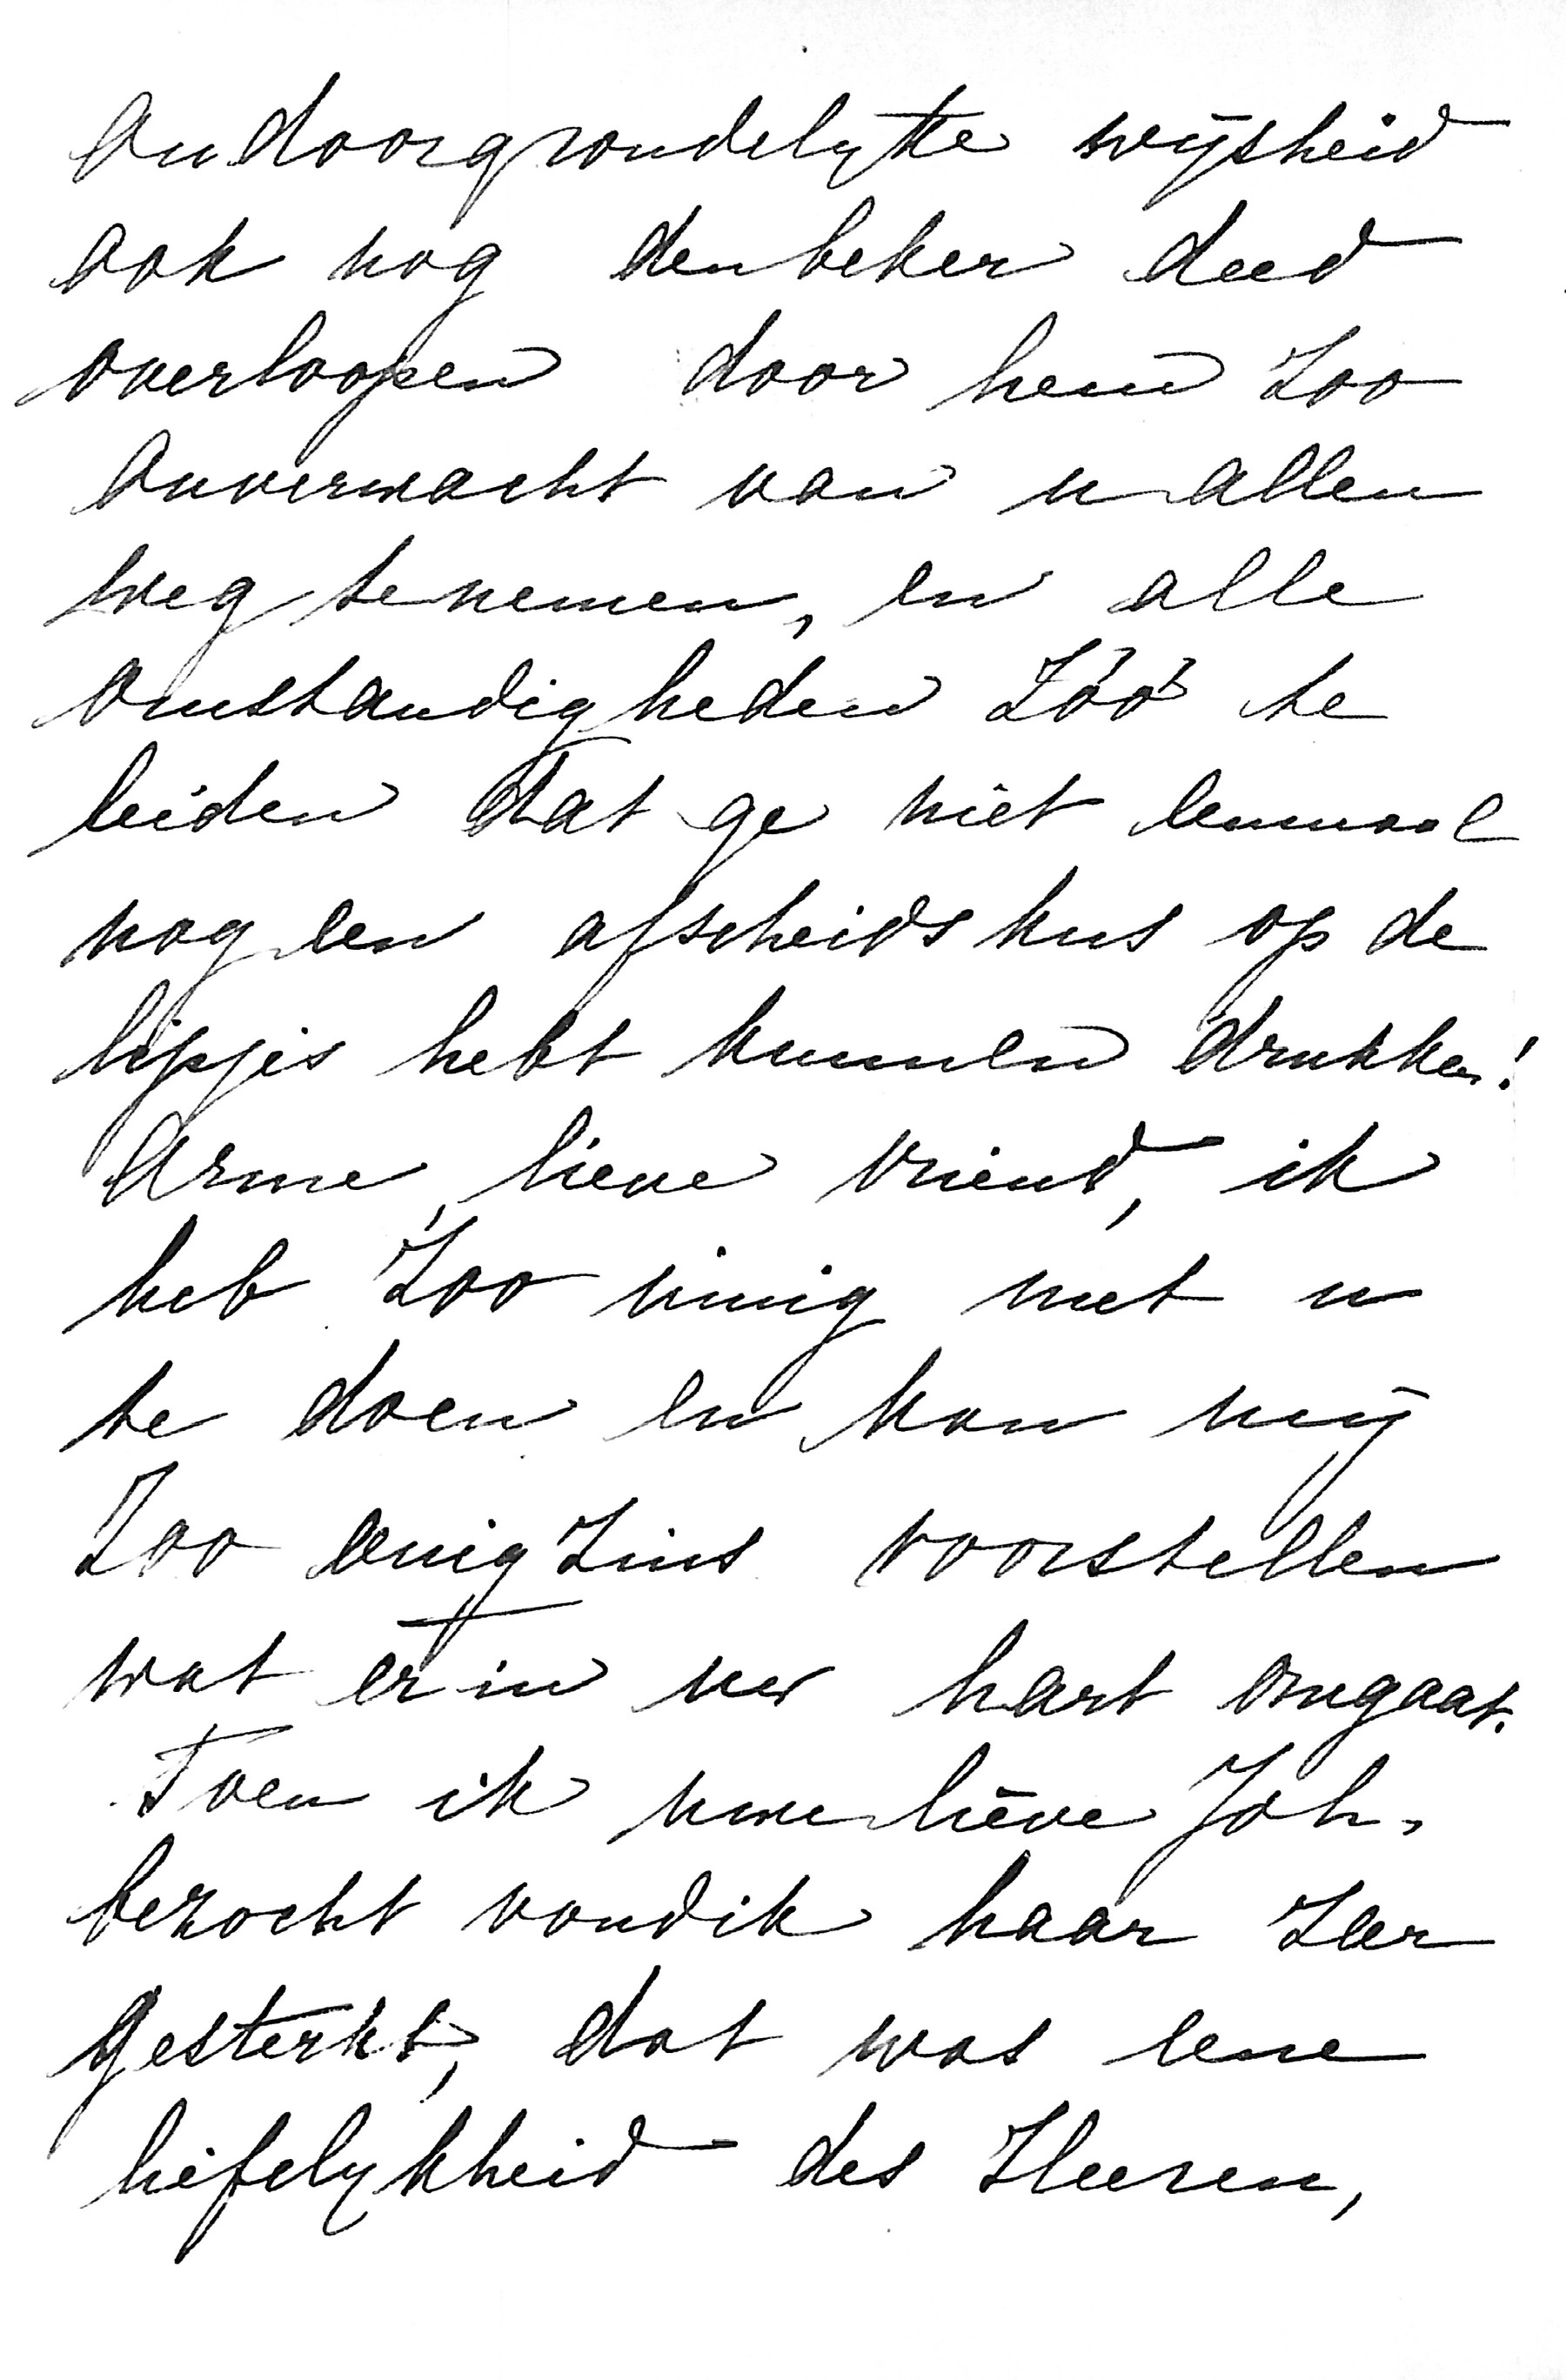 ondoorgrondelyke wijsheid
ook nog den beker deed
overloopen door hem zoo
onverwacht van u allen
weg te nemen, en alle
omstandigheden zóó te
leiden dat ge niet eenmaal
nog een afscheids kus op de
lipjes hebt kunnen drukken!
Arme, lieve vriend, ik
heb zoo innig met u
te doen en kan mij
zoo eenigzins voorstellen
wat er in uw hart omgaat.
Toen ik uwe lieve Joh.
bezocht vond ik haar zeer
gesterkt, dat was eene
liefelykheid des Heeren,